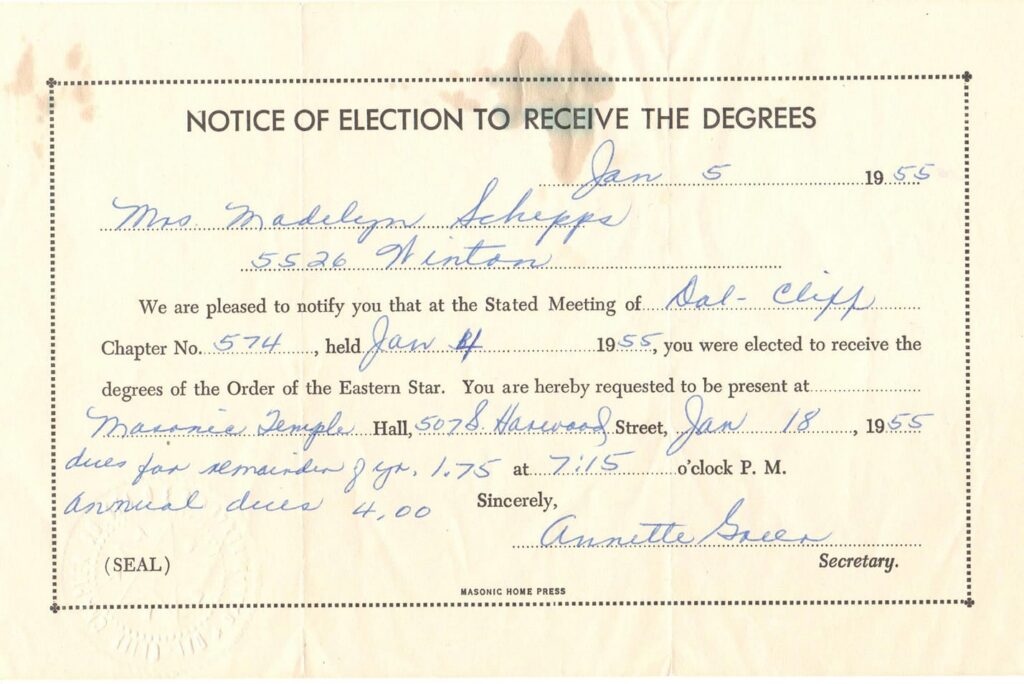 NOTICE OF ELECTION TO RECEIVE THE DEGREES
Jan 5 1955
Mrs Madelyn Schepps
5526 Winton
We are pleased to notify you that at the Stated Meeting of Dal-Cliff
Chapter No. 574, held Jan 4 1955, you were elected to receive the
degrees of the Order of the Eastern Star. You are hereby requested to be present at
Masonic Temple Hall, 507 S. Harwood Street, Jan 18, 1955
dues for remainder of yr. 1.75 at 7:15 o'clock P. M.
annual dues 4.00 Sincerely,
Annette Green
(SEAL) Secretary.
MASONIC HOME PRESS